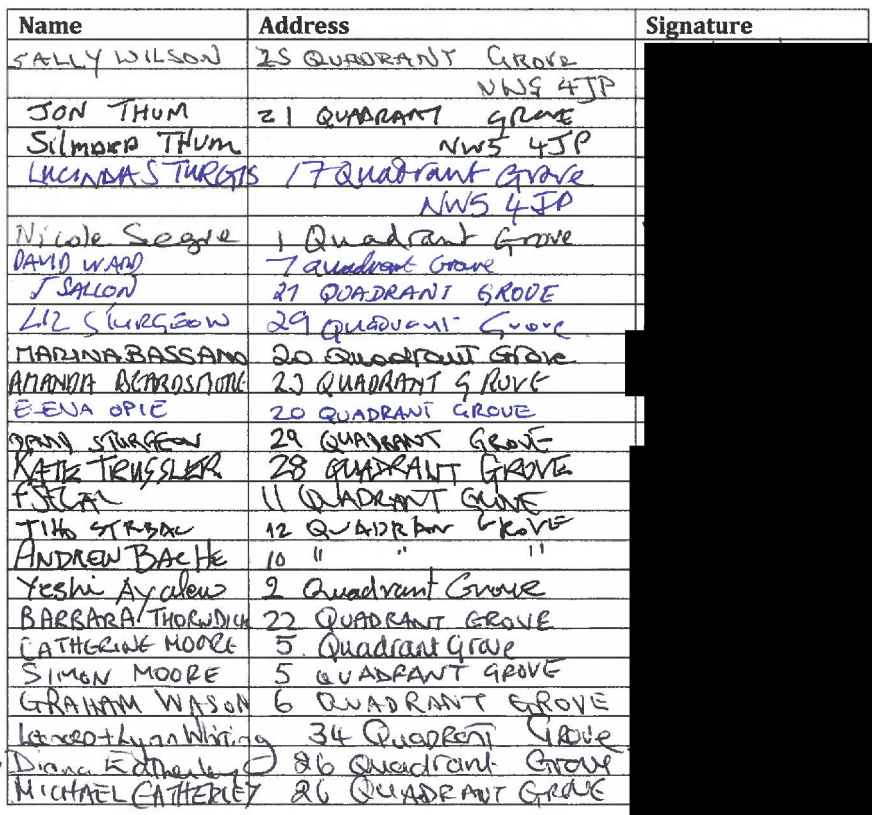 Name Address Signature
SALLY WILSON 25 QUADRANT GROVE
NW5 4JP
JON THUM 21 QUADRANT GROVE
THUM NW5 4JP
LUCINDA STURGIS 17 Quadrant Grove
NW5 4JP
Nicole Segre 1 Quadrant Grove
DAVID WARD 7 Quadrant Grove
J SALLON 27 QUADRANT GROVE
LIZ STURGEON 29 Quadrant Grove
MARINA BASSANO 20 Quadrant Grove
AMANDA BEARDSMORE 23 QUADRANT GROVE
OPIE 20 QUADRANT GROVE
STURGEON 29 QUADRANT GROVE
KATIE TRUSSLER 28 QUADRANT GROVE
11 QUADRANT GROVE
TIHO STRBAC 12 QUADRANT GROVE
ANDREW BACHE 10 " " "
Yeshi Ayalew 2 Quadrant Grove
BARBARA THORNDICK 22 QUADRANT GROVE
CATHERINE MOORE 5. Quadrant Grove
SIMON MOORE 5 QUADRANT GROVE
GRAHAM WASON 6 QUADRANT GROVE
+ Lynn Whiting 34 QUADRANT GROVE
Diana Eatherley 26 Quadrant Grove
MICHAEL EATHERLEY 26 QUADRANT GROVE